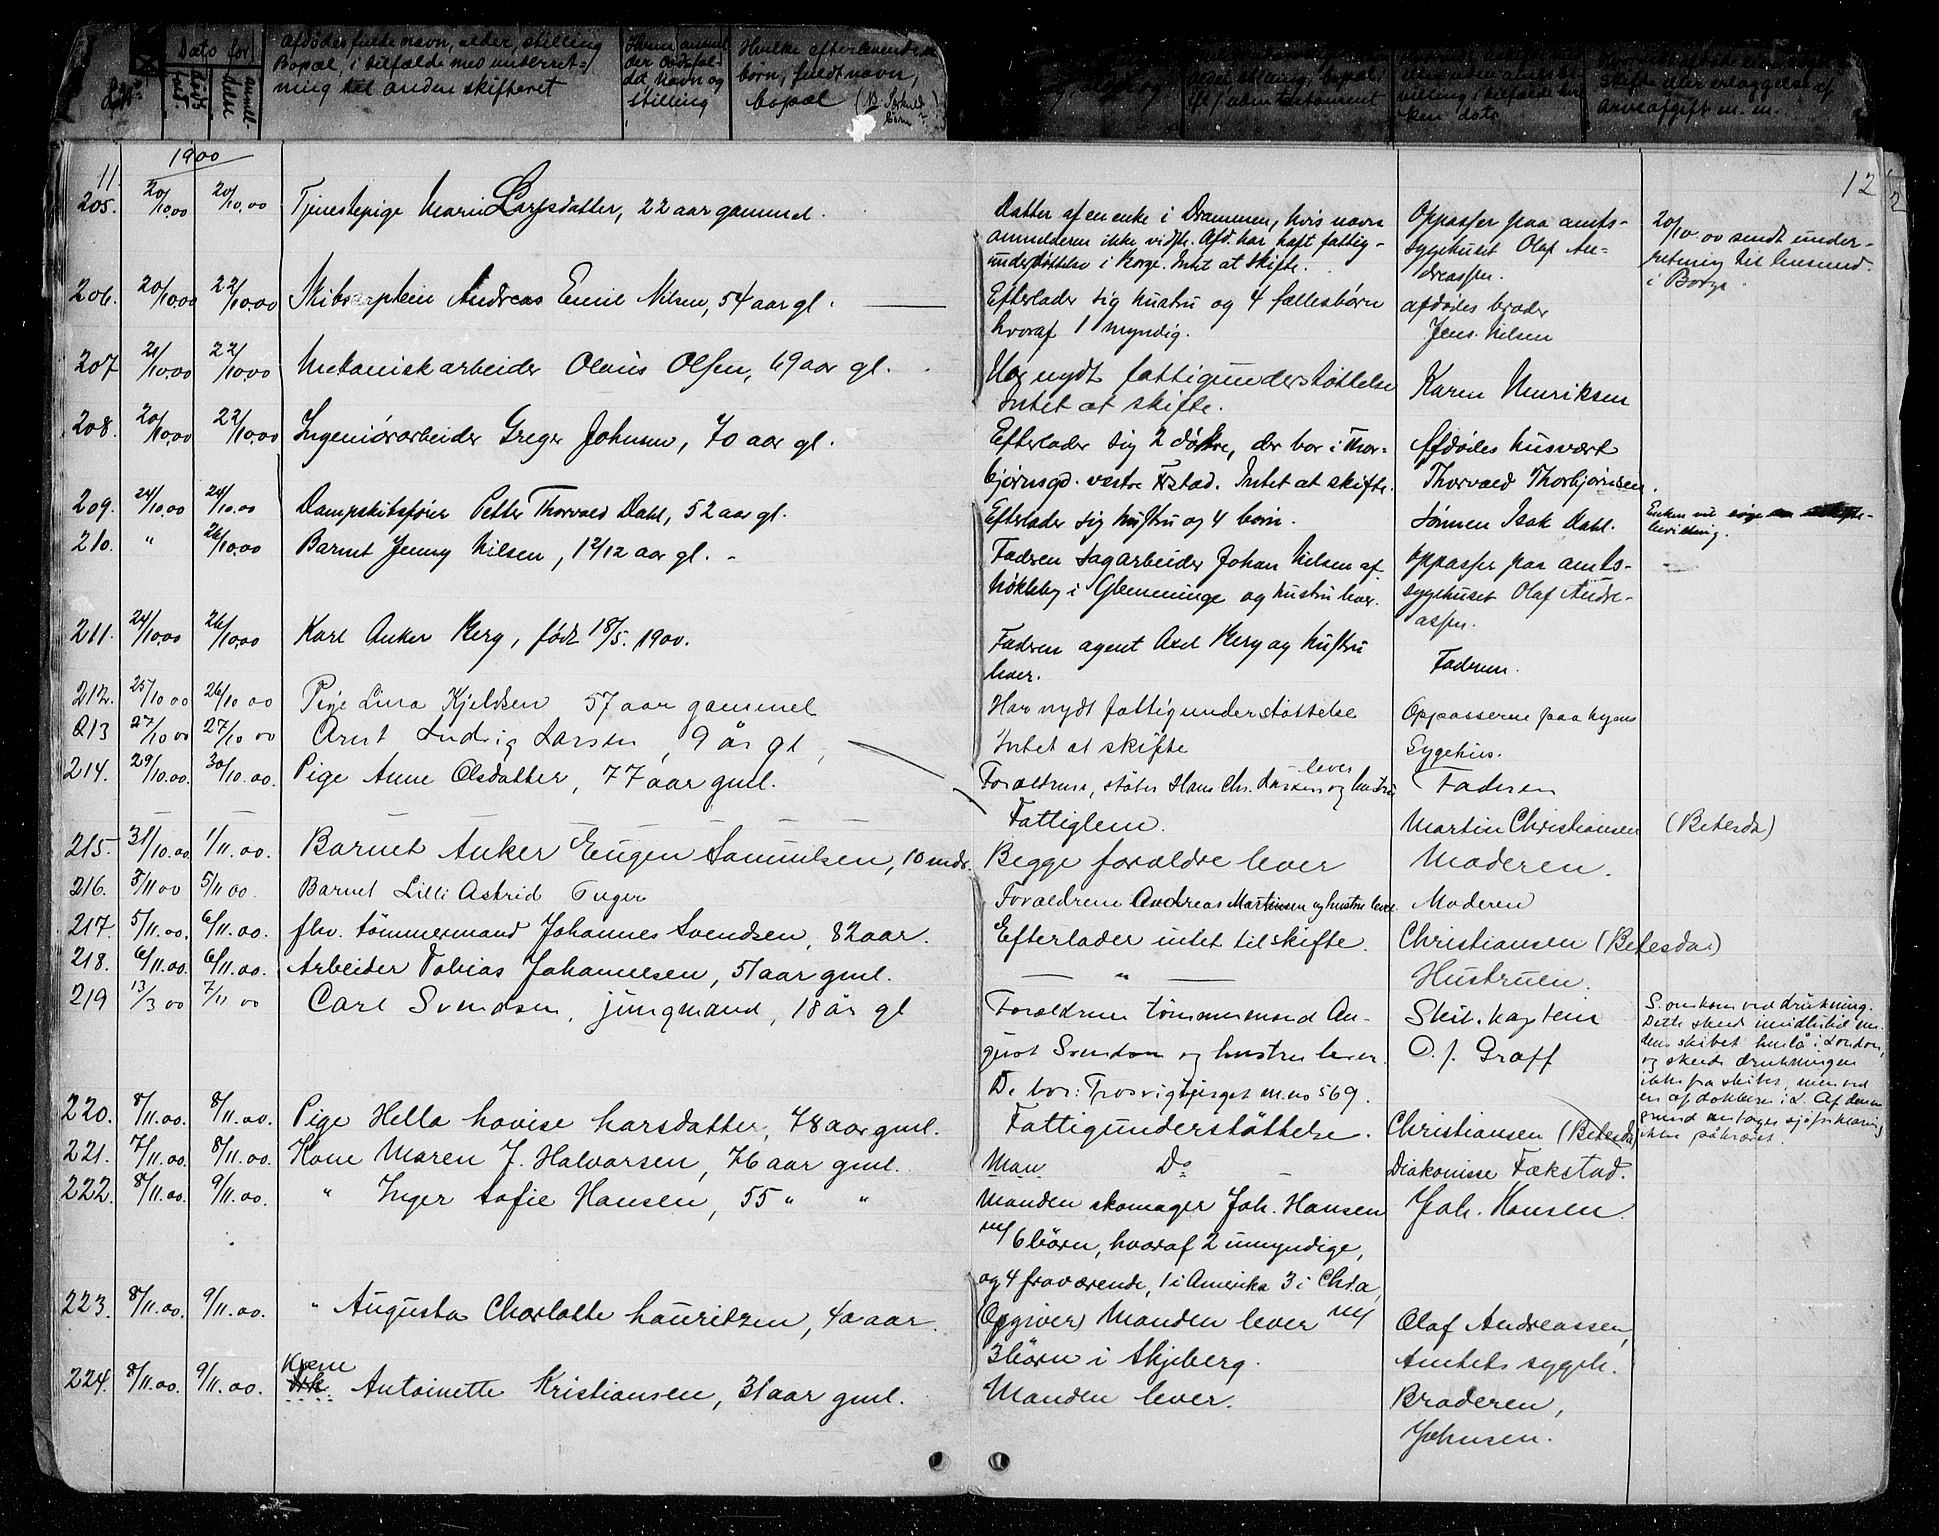 Dato for
død anmeldelse
Afdødes fulde navn, alder, stilling
Bopæl, i tilfælde med underret-
ning til anden skifteret
Hvem anmel-
der dødsfal-
det, navn og
stilling
Hvilke efterlevende
børn, fuldt navn,
bopæl
skifte eller erlæggelse af
arveafgift m. m.
1900
11.
12
205. 20/10.00 20/10.00 Tjenestepige Marie Larsdatter, 22 aar gammel.
Datter af en enke i Drammen, hvis navn
anmelderen ikke vidste. Afd. har haft fattig-
understøttelse i Borge. Intet at skifte.
Oppasser paa amts-
sygehuset Olaf An-
dreassen.
20/10.00 sendt under-
retning til lensmd.
i Borge.
206. 20/10.00 22/10.00 Skibscaptein Andreas Emil Nilsen, 54 aar gl.
Efterlader sig hustru og 4 fællesbørn
hvoraf 1 myndig.
afdødes broder
Jens Nilsen
207 21/10.00 22/10.00 Mekanisk arbeider Olaus Olsen, 69 aar gl.
Har nydt fattigunderstøttelse
Intet at skifte.
Karen Henriksen
208. 20/10.00 22/10.00 Ingeniørarbeider Greger Johnsen, 70 aar gl.
Efterlader sig 2 døtre, der bor i Thor-
bjørnsgd. vestre Frstad. Intet at skifte.
Afdødes husvært
Thorvald Thorbjørnsen.
209. 24/10.00 24/10.00 Dampskibsfører Petter Thorvald Dahl, 52 aar gl.
Efterlader sig hustru og 4 børn.
Sønnen Isak Dahl.
Enken vil søge
bevilling.
210. " 26/10.00 Barnet Jenny Nilsen, 1 2/12 aar gl.
Faderen sagarbeider Johan Nilsen af
Nøkleby i Glemminge og hustru lever.
oppasser paa amts-
sygehuset Olaf Andre-
assen.
211. 24/10.00 26/10.00 Karl Anker Berg, født 18/5. 1900.
Faderen agent Axel Berg og hustru
lever.
Faderen.
212. 25/10 00 26/10 00 Pige Lina Kjeldsen 57 aar gammel
Har nydt fattigunderstøttelse
Intet at skifte
Oppasserne paa byens
Sygehus.
213 27/10 00 27/10 00 Arnt Ludvig Larsen, 9 år gl,
Forældrene, støber Hans Chr. Larsen og hustru lever
Faderen
214. 29/10.00. 30/10.00. Pige Anne Olsdatter, 77 aar gml.
Fattiglem.
Martin Christiansen (Betesda)
215. 31/10.00. 1/11.00. Barnet Anker Eugen Samuelsen, 10 mdr.
Begge forældre lever
Moderen.
216. 3/11 00 5/11 00. Barnet Lilli Astrid Inger
Forældrene Andreas Martinsen og hustru lever
Moderen
217. 5/11.00. 6/11.00. fhv. tømmermand Johannes Svendsen, 82 aar.
Efterlader intet til skifte.
Christiansen (Betesda)
218. 6/11.00. 6/11.00. Arbeider Tobias Johannesen, 51 aar gml.
— " —
Hustruen.
219 13/3 00 7/11 00 Carl Svendsen, jungmand, 18 år gl
Forældrene tømmermand Au-
gust Svendsen og hustru lever.
D. bor: Trosvigbjerget m.no 569.
Skibskaptein
O. J. Graff
S. omkom ved drukning.
Dette skede imidlertid me-
dens skibet henlå i London,
og skede drukningen
ikke fra skibet, men ved
en af dokkerne i L. Af denne
grund antages sjøforklaring
ikke påkrævet.
220. 8/11.00. 8/11.00. Pige Hella Lovise Larsdatter, 78 aar gml.
Fattigunderstøttelse.
Christiansen (Betesda)
221. 7/11.00. 8/11.00. Kone Maren J. Halvorsen, 76 aar gml.
Man Do —
Diakonisse Fækstad.
222. 8/11.00. 9/11.00. " Inger Sofie Hansen, 55 " "
Manden skomager Joh. Hansen
m/ 6 børn, hvoraf 2 umyndige,
og 4 fraværende, 1 i Amerika 3 i Chr.a,
Joh. Hansen.
223. 8/11.00. 9/11.00. " Augusta Charlotte Lauritzen, 40 aar.
(Opgiver) Manden lever m/
3 børn i Skjeberg.
Olaf Andreassen,
Amtets sygeh.
224. 8/11.00. 9/11.00. Kone Antoinette Kristiansen, 31 aar gml.
Manden lever.
Broderen,
Johnsen.